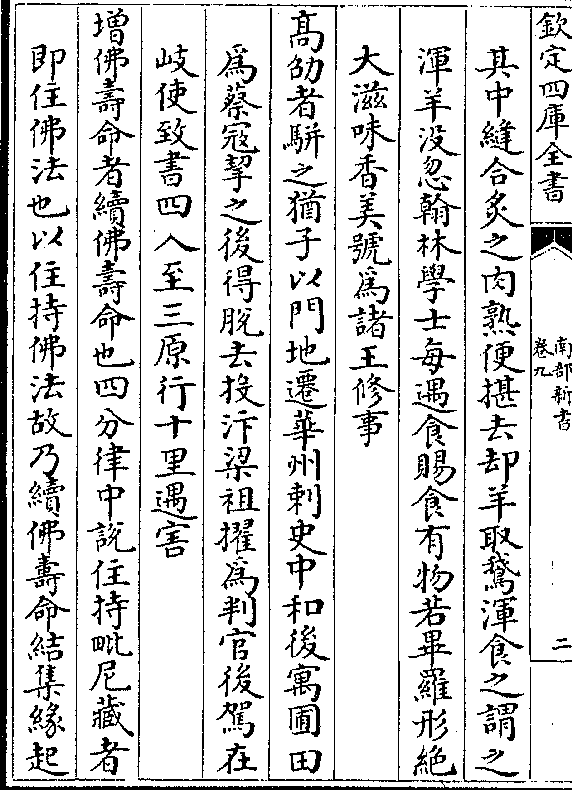 欽定四庫全書
南部新書
卷九
二
其中縫合炙之肉熟便堪去却羊取鵞渾食之謂之
渾羊没忽翰林學士每遇食賜食有物若畢羅形絶
大滋味香美號爲諸王修事
髙劭者駢之猶子以門地遷華州刺史中和後寓圃田
爲蔡寇挈之後得脫去投汴梁祖擢爲判官後駕在
岐使致書四入至三原行十里遇害
增佛壽命者續佛壽命也四分律中說住持毗尼藏者
即住佛法也以住持佛法故乃續佛壽命結集緣起